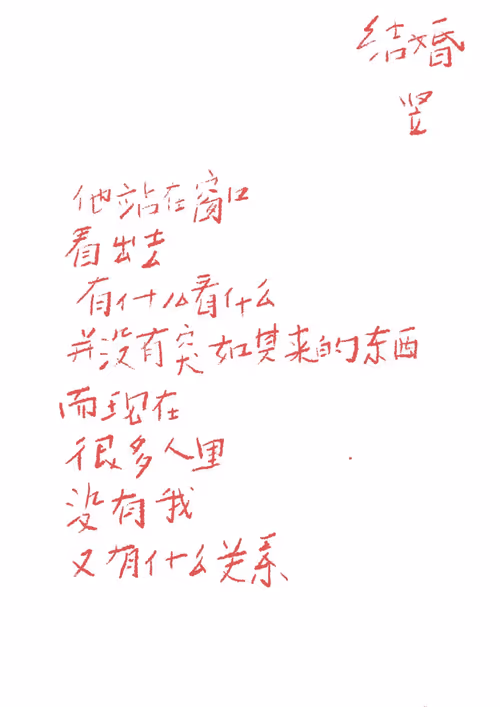 结婚
竖
他站在窗口
看出去
有什么看什么
并没有突如其来的东西
而现在
很多人里
没有我
又有什么关系